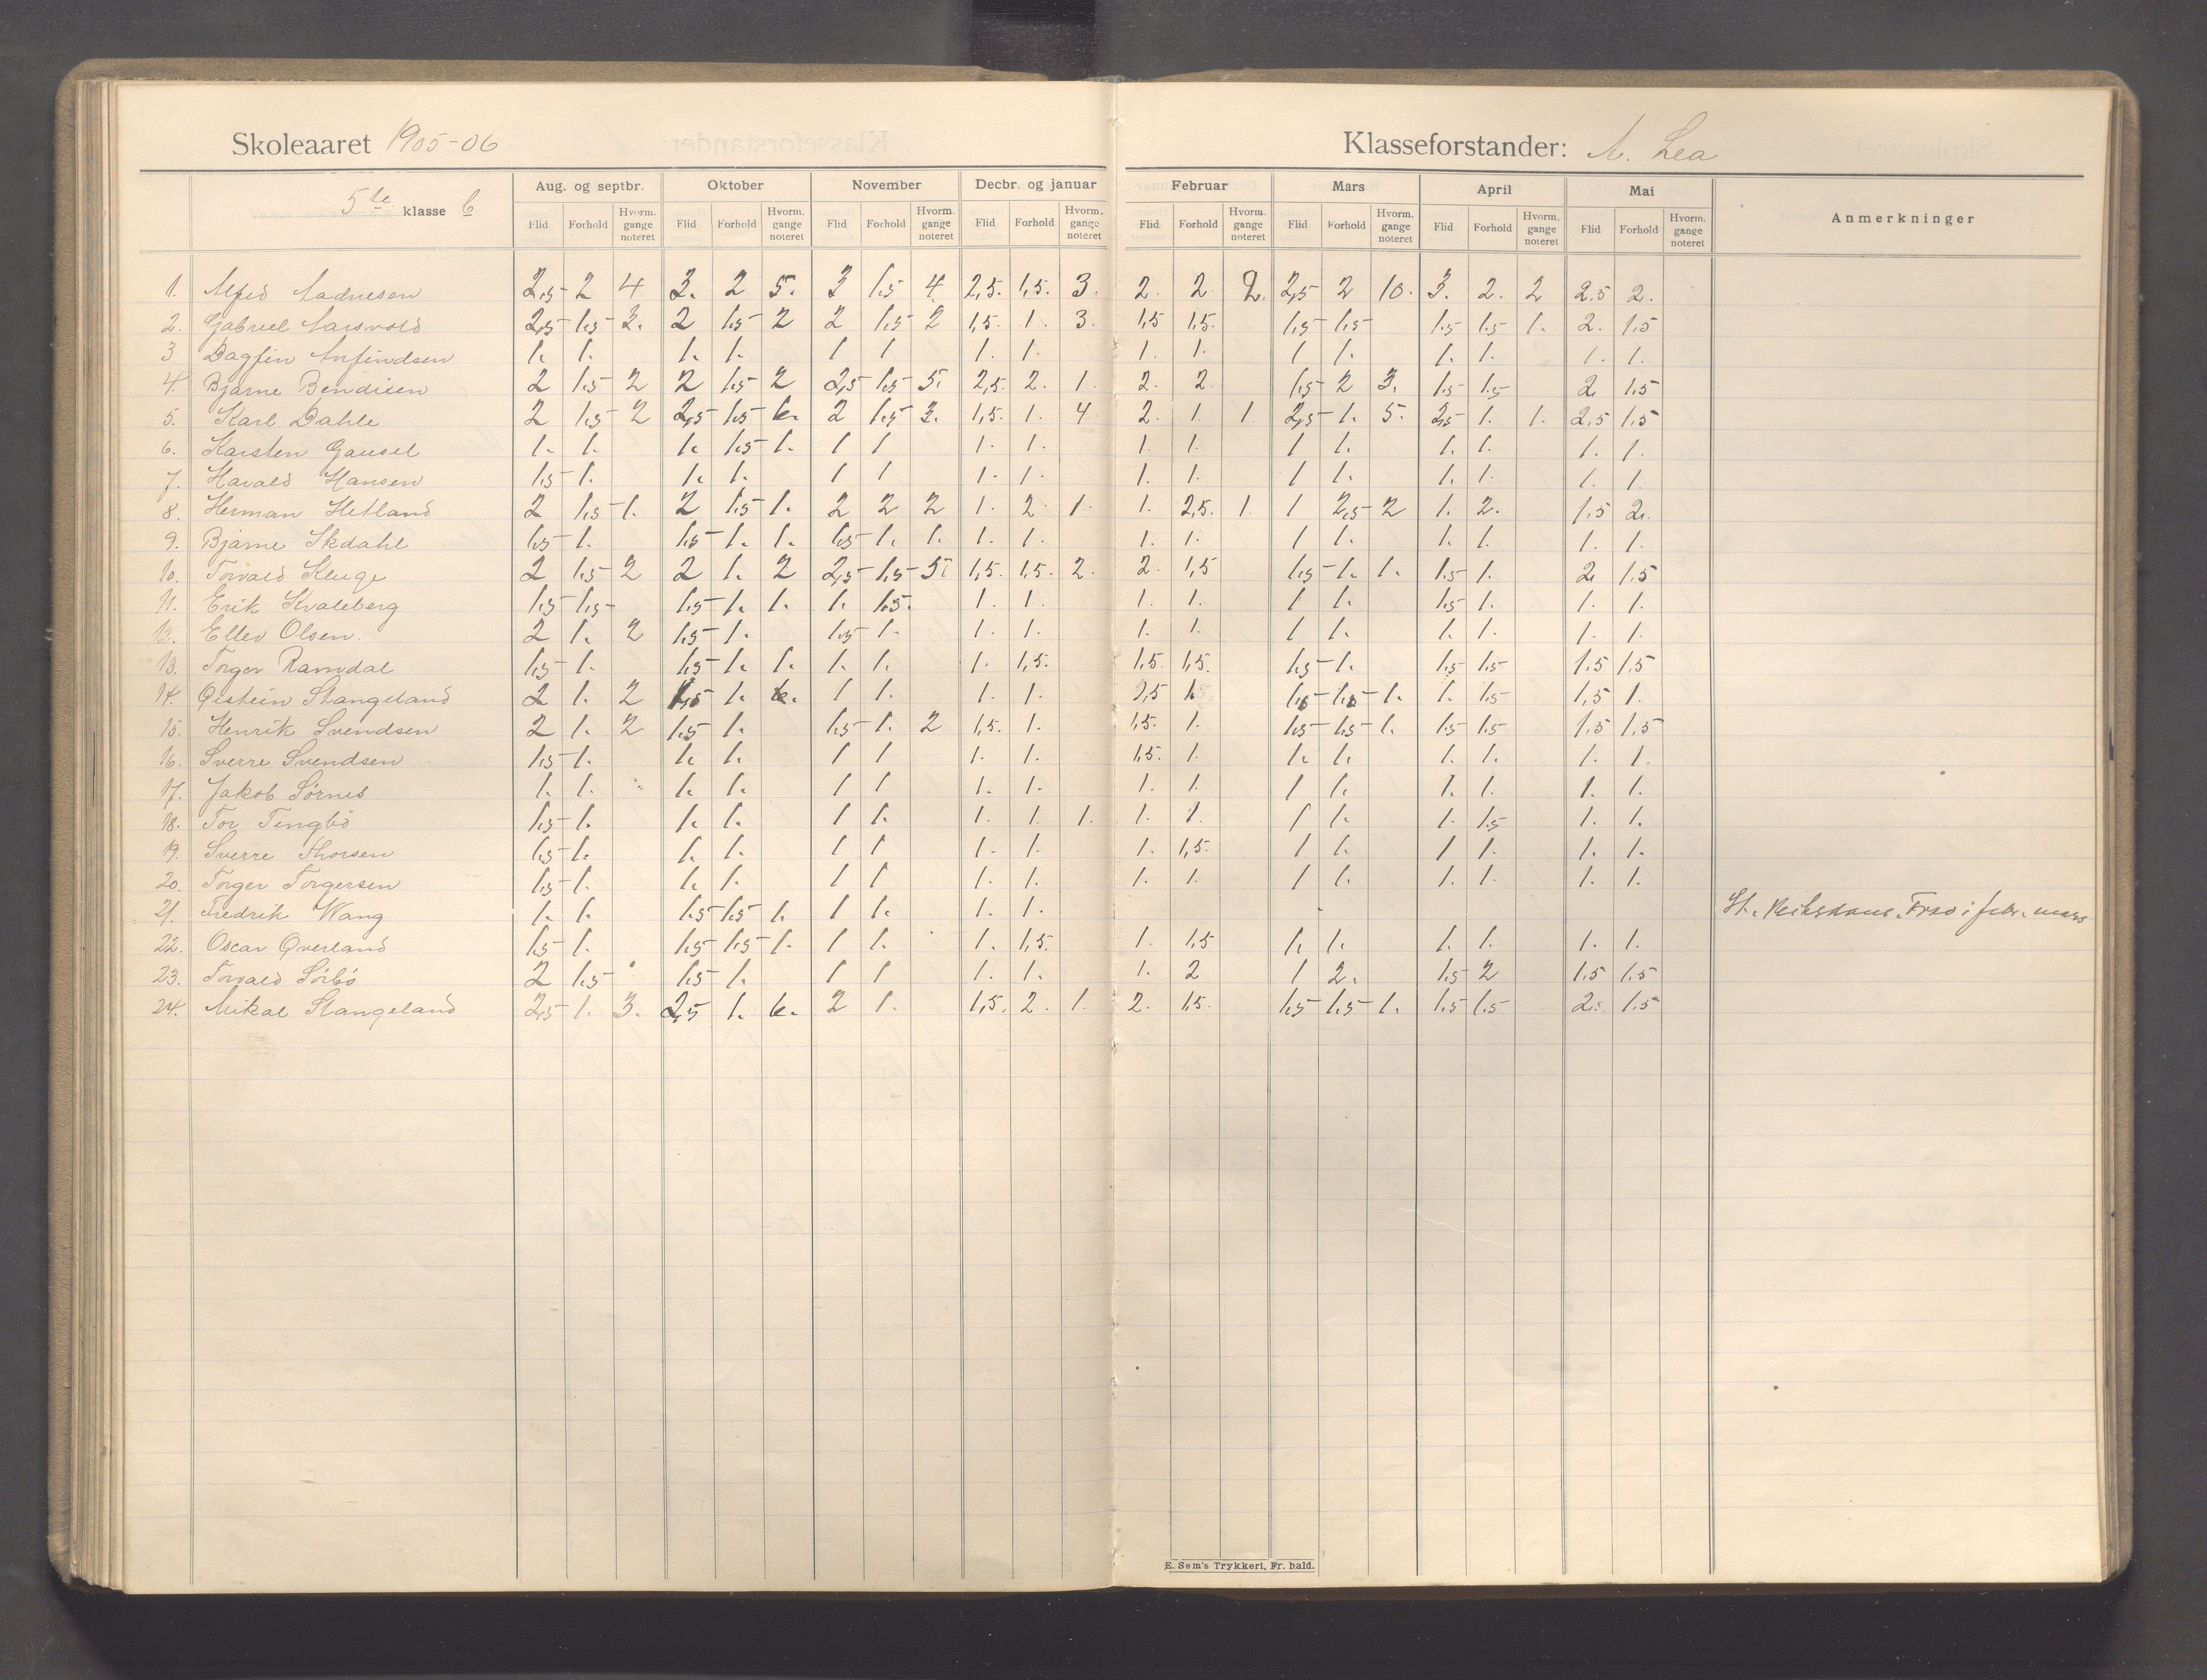 Skoleaaret 1905-06 Klasseforstander: A. Lea
5te klasse b Aug. og septbr. Oktober November Decbr. og januar Februar Mars April Mai Anmerkninger
Flid Forhold Hvorm. gange noteret Flid Forhold Hvorm. gange noteret Flid Forhold Hvorm. gange noteret Flid Forhold Hvorm. gange noteret Flid Forhold Hvorm. gange noteret Flid Forhold Hvorm. gange noteret Flid Forhold Hvorm. gange noteret Flid Forhold Hvorm. gange noteret
1. Alfred Aadnesen 2,5 2 4 3. 2 5. 3 1.5 4 2,5. 1,5. 3. 2. 2 2. 2,5 2 10. 3. 2. 2 2.5 2.
2. Gabriel Aarsvold 2,5 1.5 3. 2 1.5 2 2 1.5 2 1,5. 1. 3. 1,5 1,5. 1.5 1.5 1.5 1.5 1. 2. 1.5
3. Dagfin Anfindsen 1. 1. 1. 1. 1 1 1. 1. 1. 1. 1 1. 1. 1. 1. 1.
4. Bjarne Bendixen 2 1.5 2 2 1.5 2 2,5 1.5 5. 2,5. 2. 1. 2. 2. 1.5 2 3. 1.5 1.5 2. 1.5
5. Karl Dahle 2 1.5 2 2,5 1.5 6. 2 1.5 3. 1,5. 1. 4. 2. 1. 1. 2,5 1. 5. 2,5 1. 1. 2.5 1.5
6. Karsten Gausel 1. 1. 1. 1.5 1. 1 1 1. 1. 1. 1. 1 1. 1. 1. 1. 1.
7. Harald Hansen 1.5 1. 1. 1. 1 1 1. 1. 1. 1. 1 1. 1. 1. 1. 1.
8. Herman Hetland 2 1.5 1. 2 1.5 1. 2 2 2 1. 2. 1. 1. 2,5. 1. 1 2,5 2 1. 2. 1.5 2.
9. Bjarne Skdahl 1.5 1. 1.5 1. 1. 1.5 1. 1. 1. 1. 1. 1. 1 1. 1. 1. 1. 1.
10. Torvald Kluge 2 1.5 2 2 1. 2 2,5 1.5 5. 1,5. 1,5. 2. 2. 1,5 1.5 1. 1. 1.5 1. 2. 1.5
11. Erik Kvaleberg 1.5 1.5 1.5 1. 1. 1. 1.5. 1. 1. 1. 1. 1 1. 1.5 1. 1. 1.
12. Ellev Olsen. 2 1. 2 1.5 1. 1.5 1. 1. 1. 1. 1. 1 1. 1. 1. 1. 1.
13. Torger Ramdal 1.5 1. 1.5 1. 1. 1. 1. 1. 1,5. 1,5. 1,5. 1.5 1. 1.5 1.5 1.5 1.5
14. Øistein Stangeland 2 1. 2 1.5 1. 6. 1 1. 1. 1. 2,5 1. 1.5 1.5 1. 1. 1.5 1,5 1.
15. Henrik Svendsen 2 1. 2 1.5 1. 1.5 1. 2 1,5. 1. 1,5. 1. 1.5 1.5 1. 1.5 1.5 1.5 1.5
16. Sverre Svendsen 1.5 1. 1. 1. 1 1 1. 1. 1,5. 1. 1. 1. 1. 1. 1. 1.
17. Jakob Sörnes 1. 1. 1. 1. 1 1 1. 1. 1. 1. 1 1. 1. 1. 1. 1.
18. Tor Tengbö 1.5 1. 1. 1. 1 1. 1. 1. 1. 1. 1. 1 1. 1. 1.5 1. 1.
19. Sverre Thorsen 1.5 1. 1. 1. 1 1 1. 1. 1. 1,5. 1 1. 1 1. 1. 1.
20. Torger Torgersen 1.5 1. 1. 1. 1 1 1. 1. 1. 1. 1 1. 1. 1. 1. 1.
21. Fredrik Wang 1. 1. 1.5 1.5 1. 1 1. 1. 1. i febr. mars
22. Oscar Qverland 1.5 1. 1.5 1.5 1. 1 1. 1. 1,5. 1. 1,5 1. 1. 1. 1. 1. 1.
23. Torvald Sörbö 2 1.5 1.5 1. 1 1 1. 1. 1. 2 1 2. 1.5 2 1.5 1.5
24. Mikal Stangeland 2,5 1. 3. 2,5 1. 6. 2 1. 1,5. 2. 1. 2. 1,5. 1.5 1.5 1. 1.5 1.5 2. 1.5
E. Sem's Trykkeri, Fr. hald.